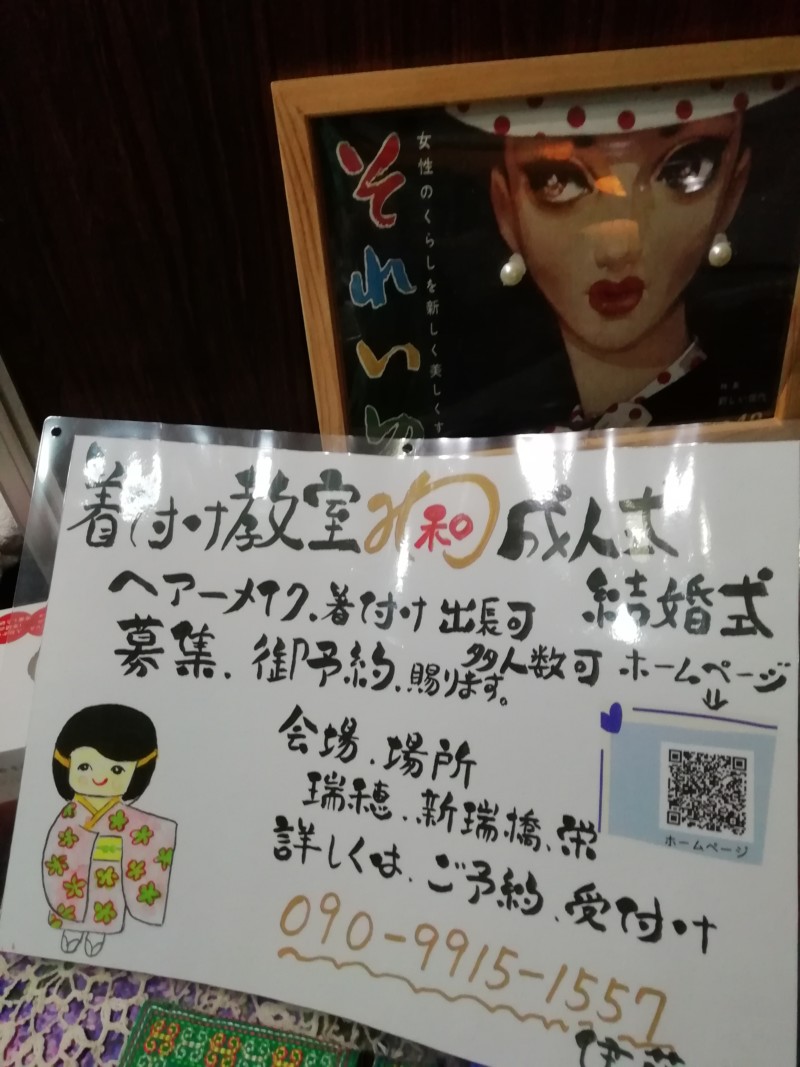 それいゆ
女性のくらしを新しく美しくす
着付け教室 和 成人式
ヘアーメイク、着付け 出張可 結婚式
募集、御予約、賜ります。多人数可 ホームページ
⇓
会場、場所
瑞穂、新瑞橋、栄
ホームページ
詳しくは、ご予約、受付け
090-9915-1557